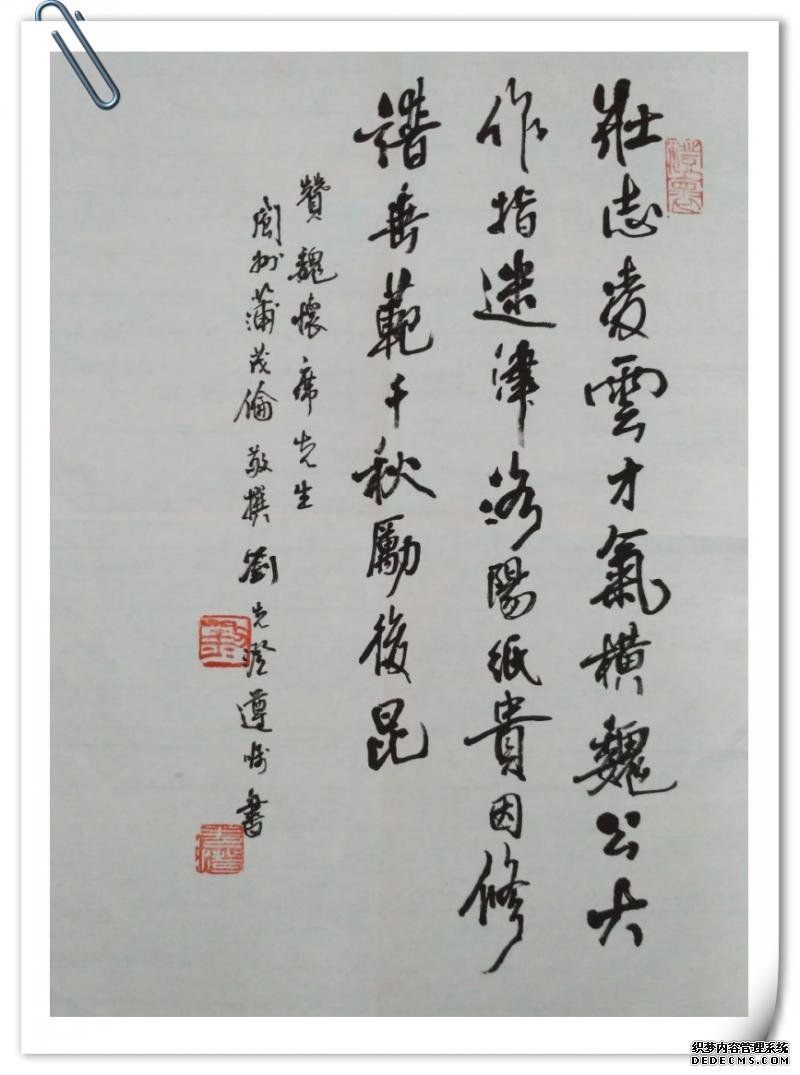 壯志凌雲才氣橫魏公大
作指迷津洛陽紙貴因修
譜垂範千秋勵後昆
贊魏懷席先生
閬州蒲茂倫敬撰劉先澄遵嘱書
织梦内容管理系统
DEDECMS.COM